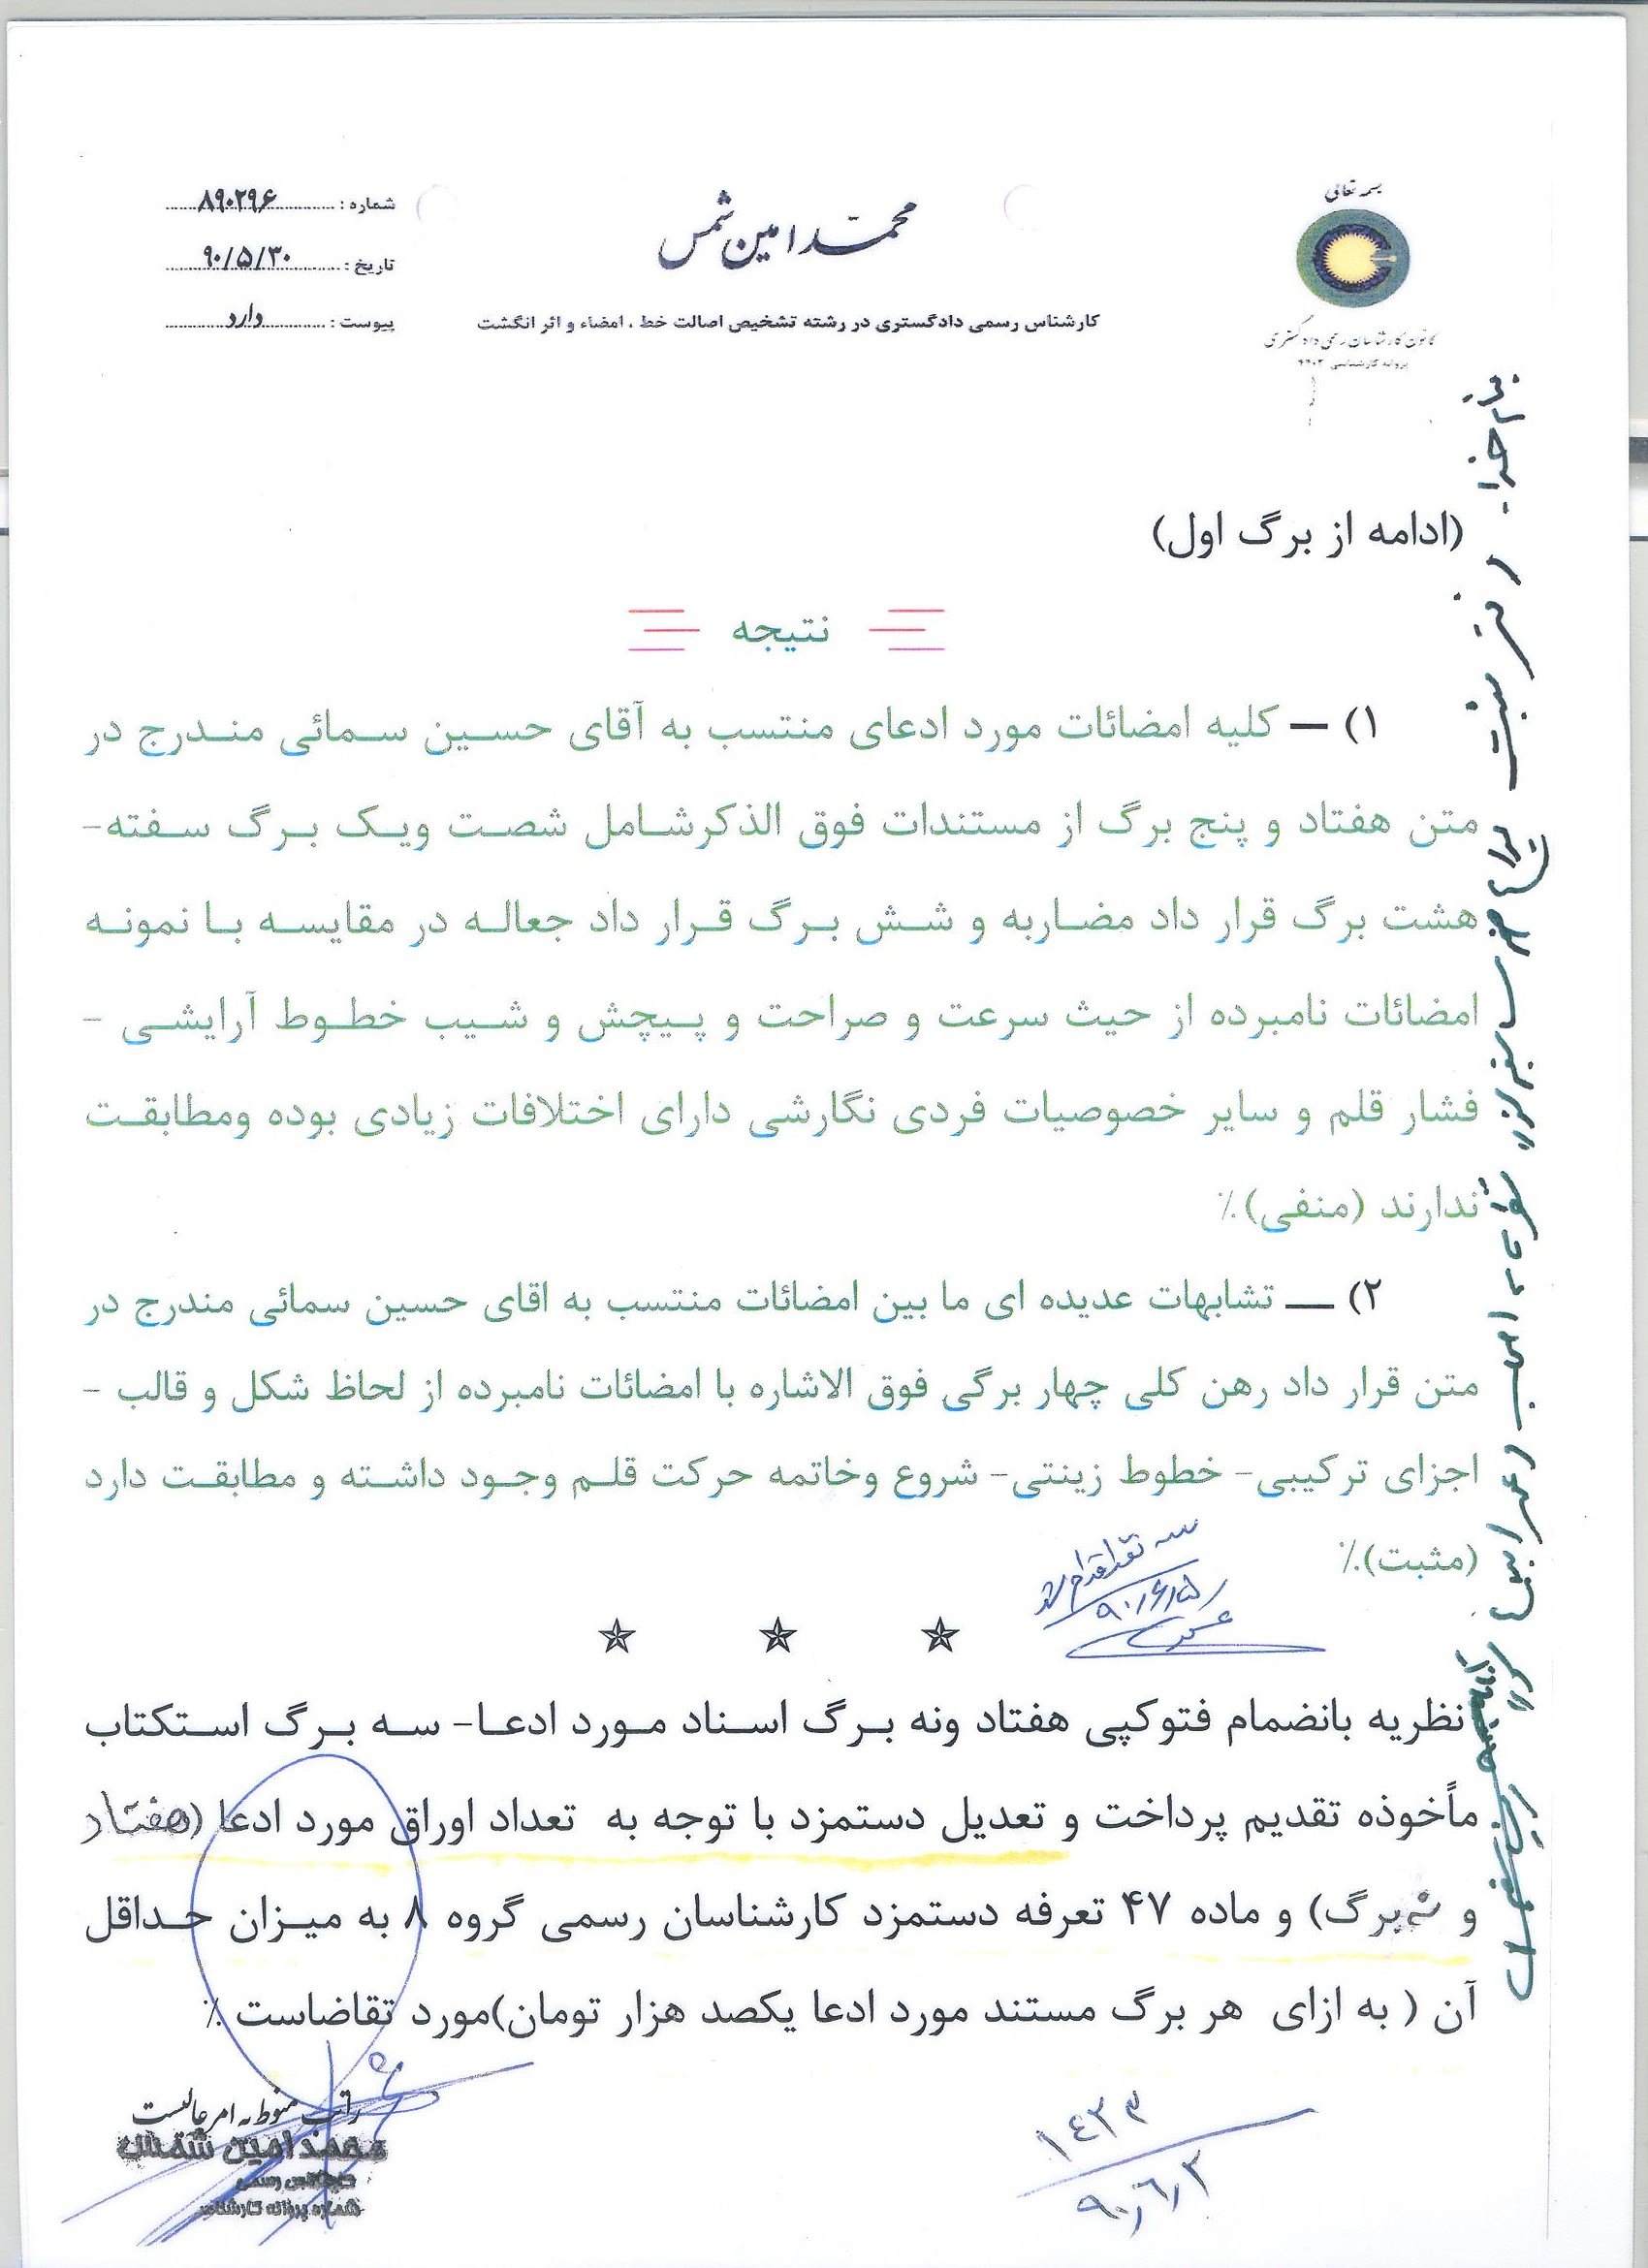 بسمه تعالی
کانون کارشناسان رسمی دادگستری
پروانه کارشناسی
محمد امین شمس
کارشناس رسمی دادگستری در رشته تشخیص اصالت خط ، امضاء و اثر انگشت
شماره : ۸۹۰۲۹۶
تاریخ : ۹۰/۵/۳۰
پیوست : دارد
(ادامه از برگ اول)
نتیجه
۱) – کلیه امضائات مورد ادعای منتسب به آقای حسین سمائی مندرج در
متن هفتاد و پنج برگ از مستندات فوق الذکرشامل شصت ویک برگ سفته-
هشت برگ قرار داد مضاربه و شش برگ قرار داد جعاله در مقایسه با نمونه
امضائات نامبرده از حیث سرعت و صراحت و پیچش و شیب خطوط آرایشی -
فشار قلم و سایر خصوصیات فردی نگارشی دارای اختلافات زیادی بوده ومطابقت
ندارند (منفی)٪
۲) – تشابهات عدیده ای ما بین امضائات منتسب به اقای حسین سمائی مندرج در
متن قرار داد رهن کلی چهار برگی فوق الاشاره با امضائات نامبرده از لحاظ شکل و قالب -
اجزای ترکیبی- خطوط زینتی- شروع وخاتمه حرکت قلم وجود داشته و مطابقت دارد
(مثبت)٪
۹۰/۶/۵
نظریه بانضمام فتوکپی هفتاد ونه برگ اسناد مورد ادعا- سه برگ استکتاب
مأخوذه تقدیم پرداخت و تعدیل دستمزد با توجه به تعداد اوراق مورد ادعا (هفتاد
و نه برگ) و ماده ۴۷ تعرفه دستمزد کارشناسان رسمی گروه ۸ به میزان حداقل
آن ( به ازای هر برگ مستند مورد ادعا یکصد هزار تومان)مورد تقاضاست ٪
مراتب منوط به امر عالیست
محمد امین شمس
کارشناس رسمی
شماره پروانه کارشناسی
۱۴۲۳
۹۰/۶/۲
بنام خدا